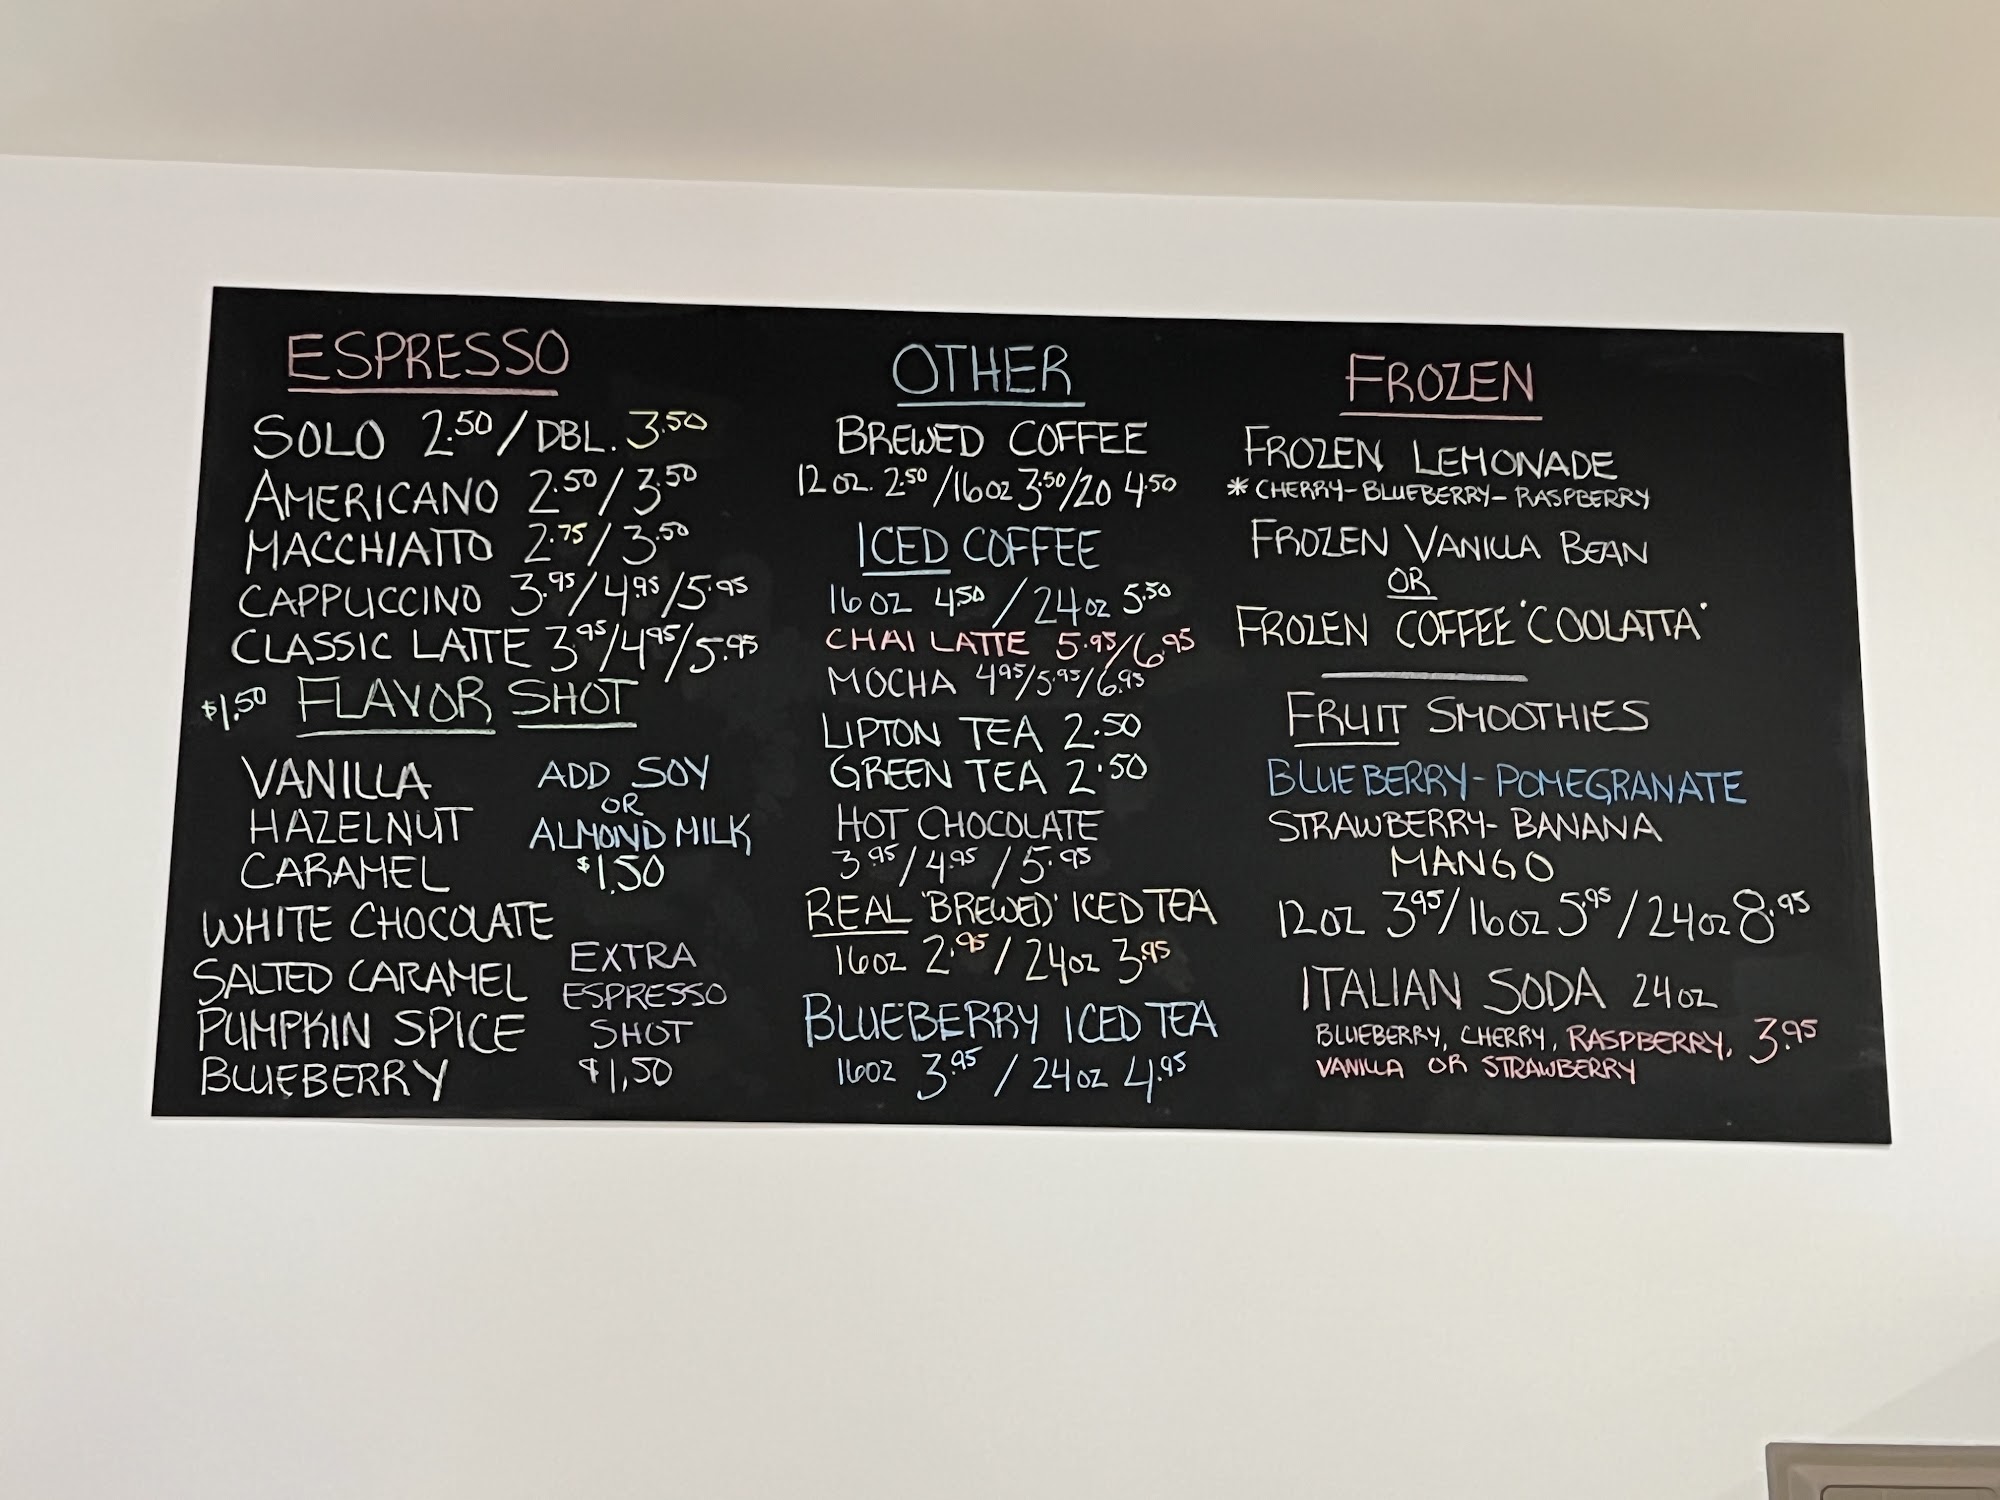 ESPRESSO
SOLO 2.50 / DBL. 3.50
AMERICANO 2.50 / 3.50
MACCHIATTO 2.75 / 3.50
CAPPUCCINO 3.95 / 4.95 / 5.95
CLASSIC LATTE 3.95 / 4.95 / 5.95
$1.50 FLAVOR SHOT
VANILLA
HAZELNUT
CARAMEL
WHITE CHOCOLATE
SALTED CARAMEL
PUMPKIN SPICE
BLUEBERRY
ADD SOY
OR
ALMOND MILK
$1.50
EXTRA
ESPRESSO
SHOT
$1.50
OTHER
BREWED COFFEE
12 OZ. 2.50 / 16 OZ 3.50 / 20 4.50
ICED COFFEE
16 OZ 4.50 / 24 OZ 5.50
CHAI LATTE 5.95 / 6.95
MOCHA 4.95 / 5.95 / 6.95
LIPTON TEA 2.50
GREEN TEA 2.50
HOT CHOCOLATE
3.95 / 4.95 / 5.95
REAL 'BREWED' ICED TEA
16 OZ 2.95 / 24 OZ 3.95
BLUEBERRY ICED TEA
16 OZ 3.95 / 24 OZ 4.95
FROZEN
FROZEN LEMONADE
* CHERRY - BLUEBERRY - RASPBERRY
FROZEN VANILLA BEAN
OR
FROZEN COFFEE 'COOLATTA'
FRUIT SMOOTHIES
BLUEBERRY - POMEGRANATE
STRAWBERRY - BANANA
MANGO
12 OZ 3.95 / 16 OZ 5.95 / 24 OZ 8.95
ITALIAN SODA 24 OZ
BLUEBERRY, CHERRY, RASPBERRY, 3.95
VANILLA OR STRAWBERRY